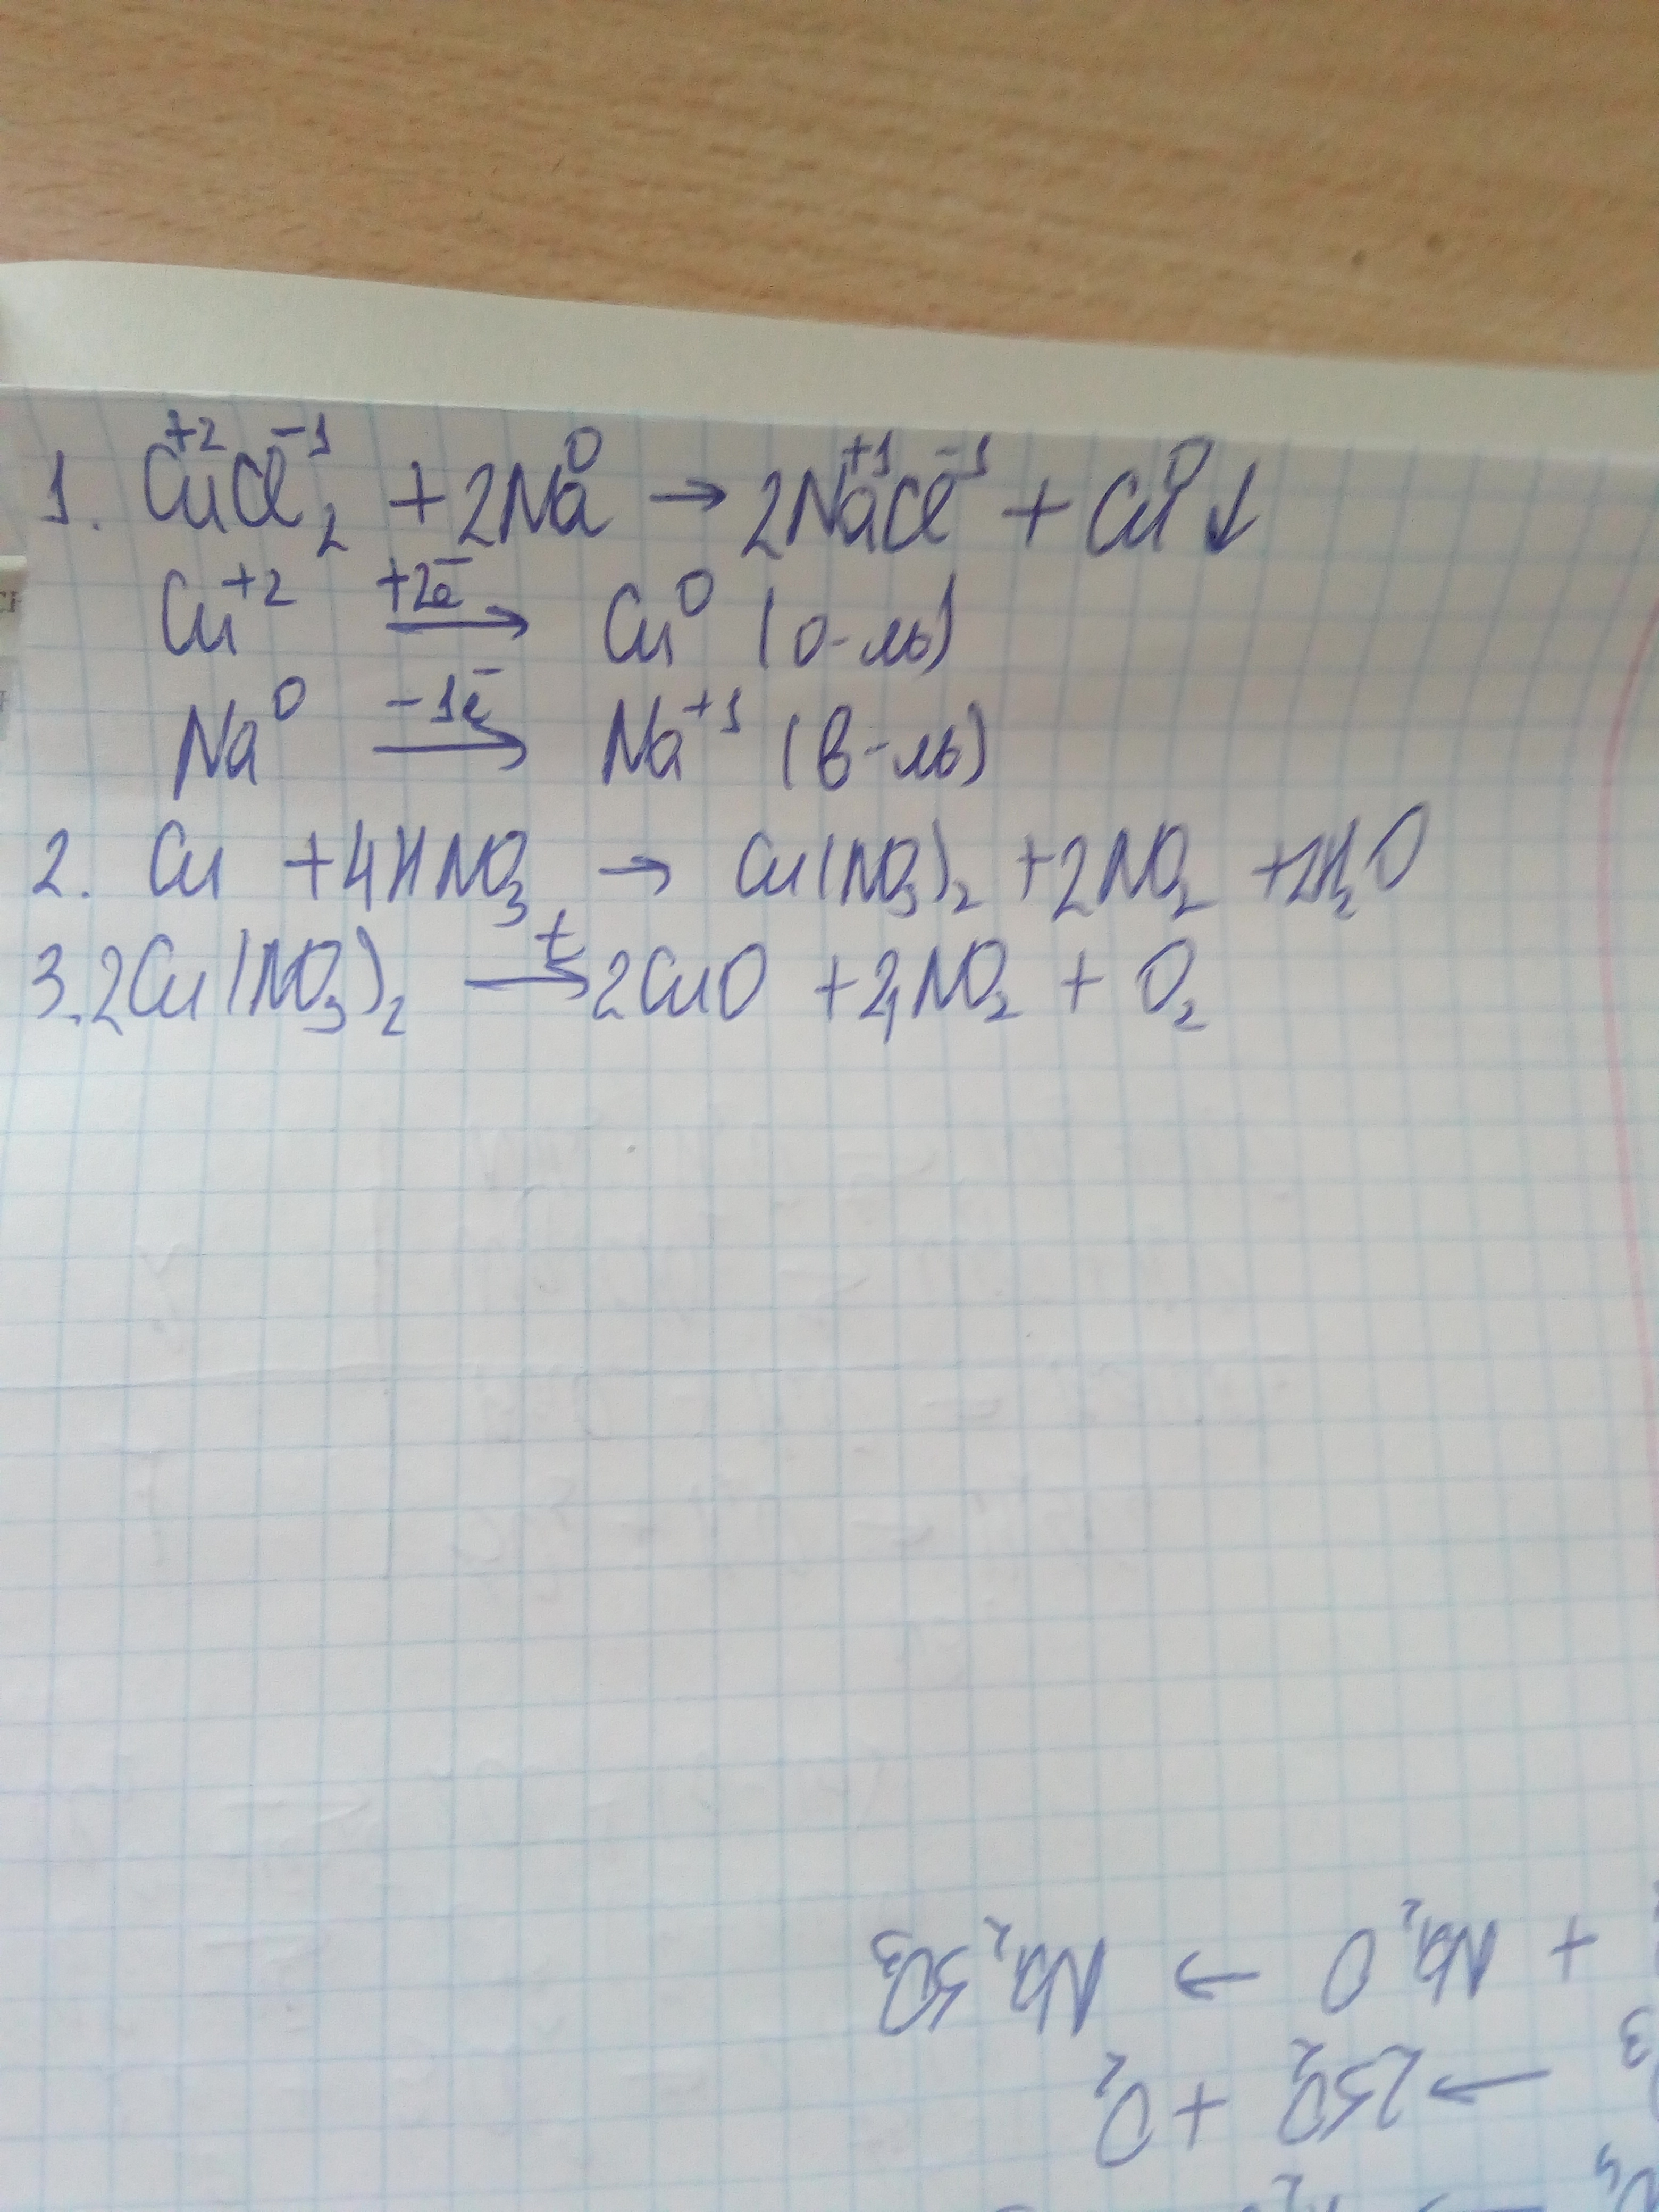 1. Cu⁺²Cl⁻¹₂ + 2Na⁰ → 2Na⁺¹Cl⁻¹ + Cu⁰↓
Cu⁺² +2ē→ Cu⁰ (о-ль)
Na⁰ -1ē→ Na⁺¹ (в-ль)
2. Cu + 4HNO₃ → Cu(NO₃)₂ + 2NO₂ + 2H₂O
3. 2Cu(NO₃)₂ t→ 2CuO + 2,NO₂ + O₂
→ 2SO₂ + O₂
+ Na₂O → Na₂SO₃